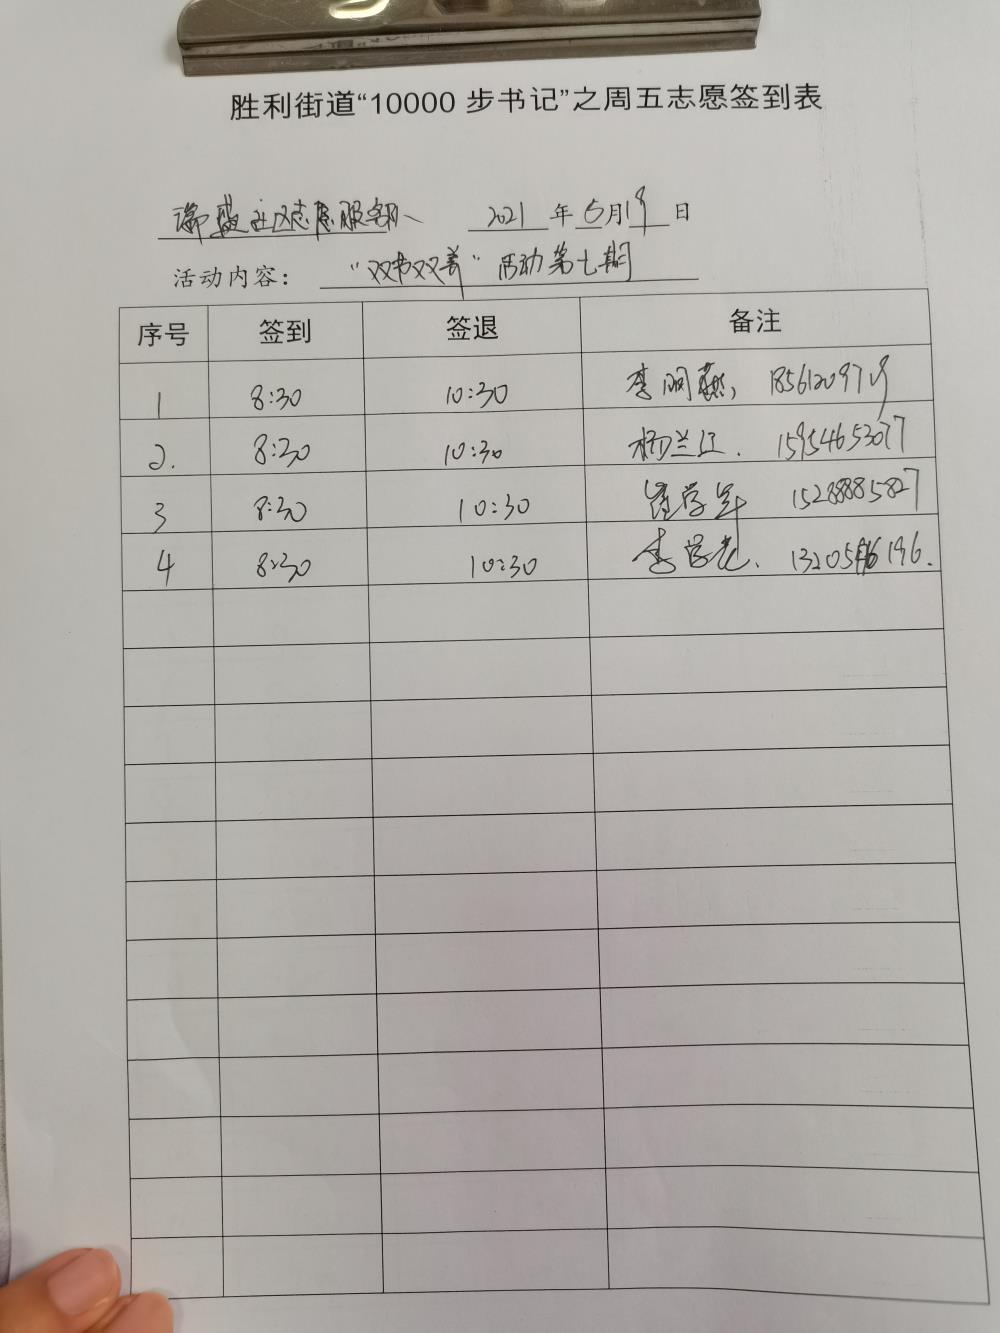 胜利街道“10000 步书记”之周五志愿签到表
瑞盛社区志愿服务队 2021 年 5月19日
活动内容： “双书双善” 活动第七期
序号 签到 签退 备注
1 8:30 10:30 李
2. 8:30 10:30 杨兰江. 15954653077
3 8:30 10:30 学军 15288885827
4 8:30 10:30 李学老.